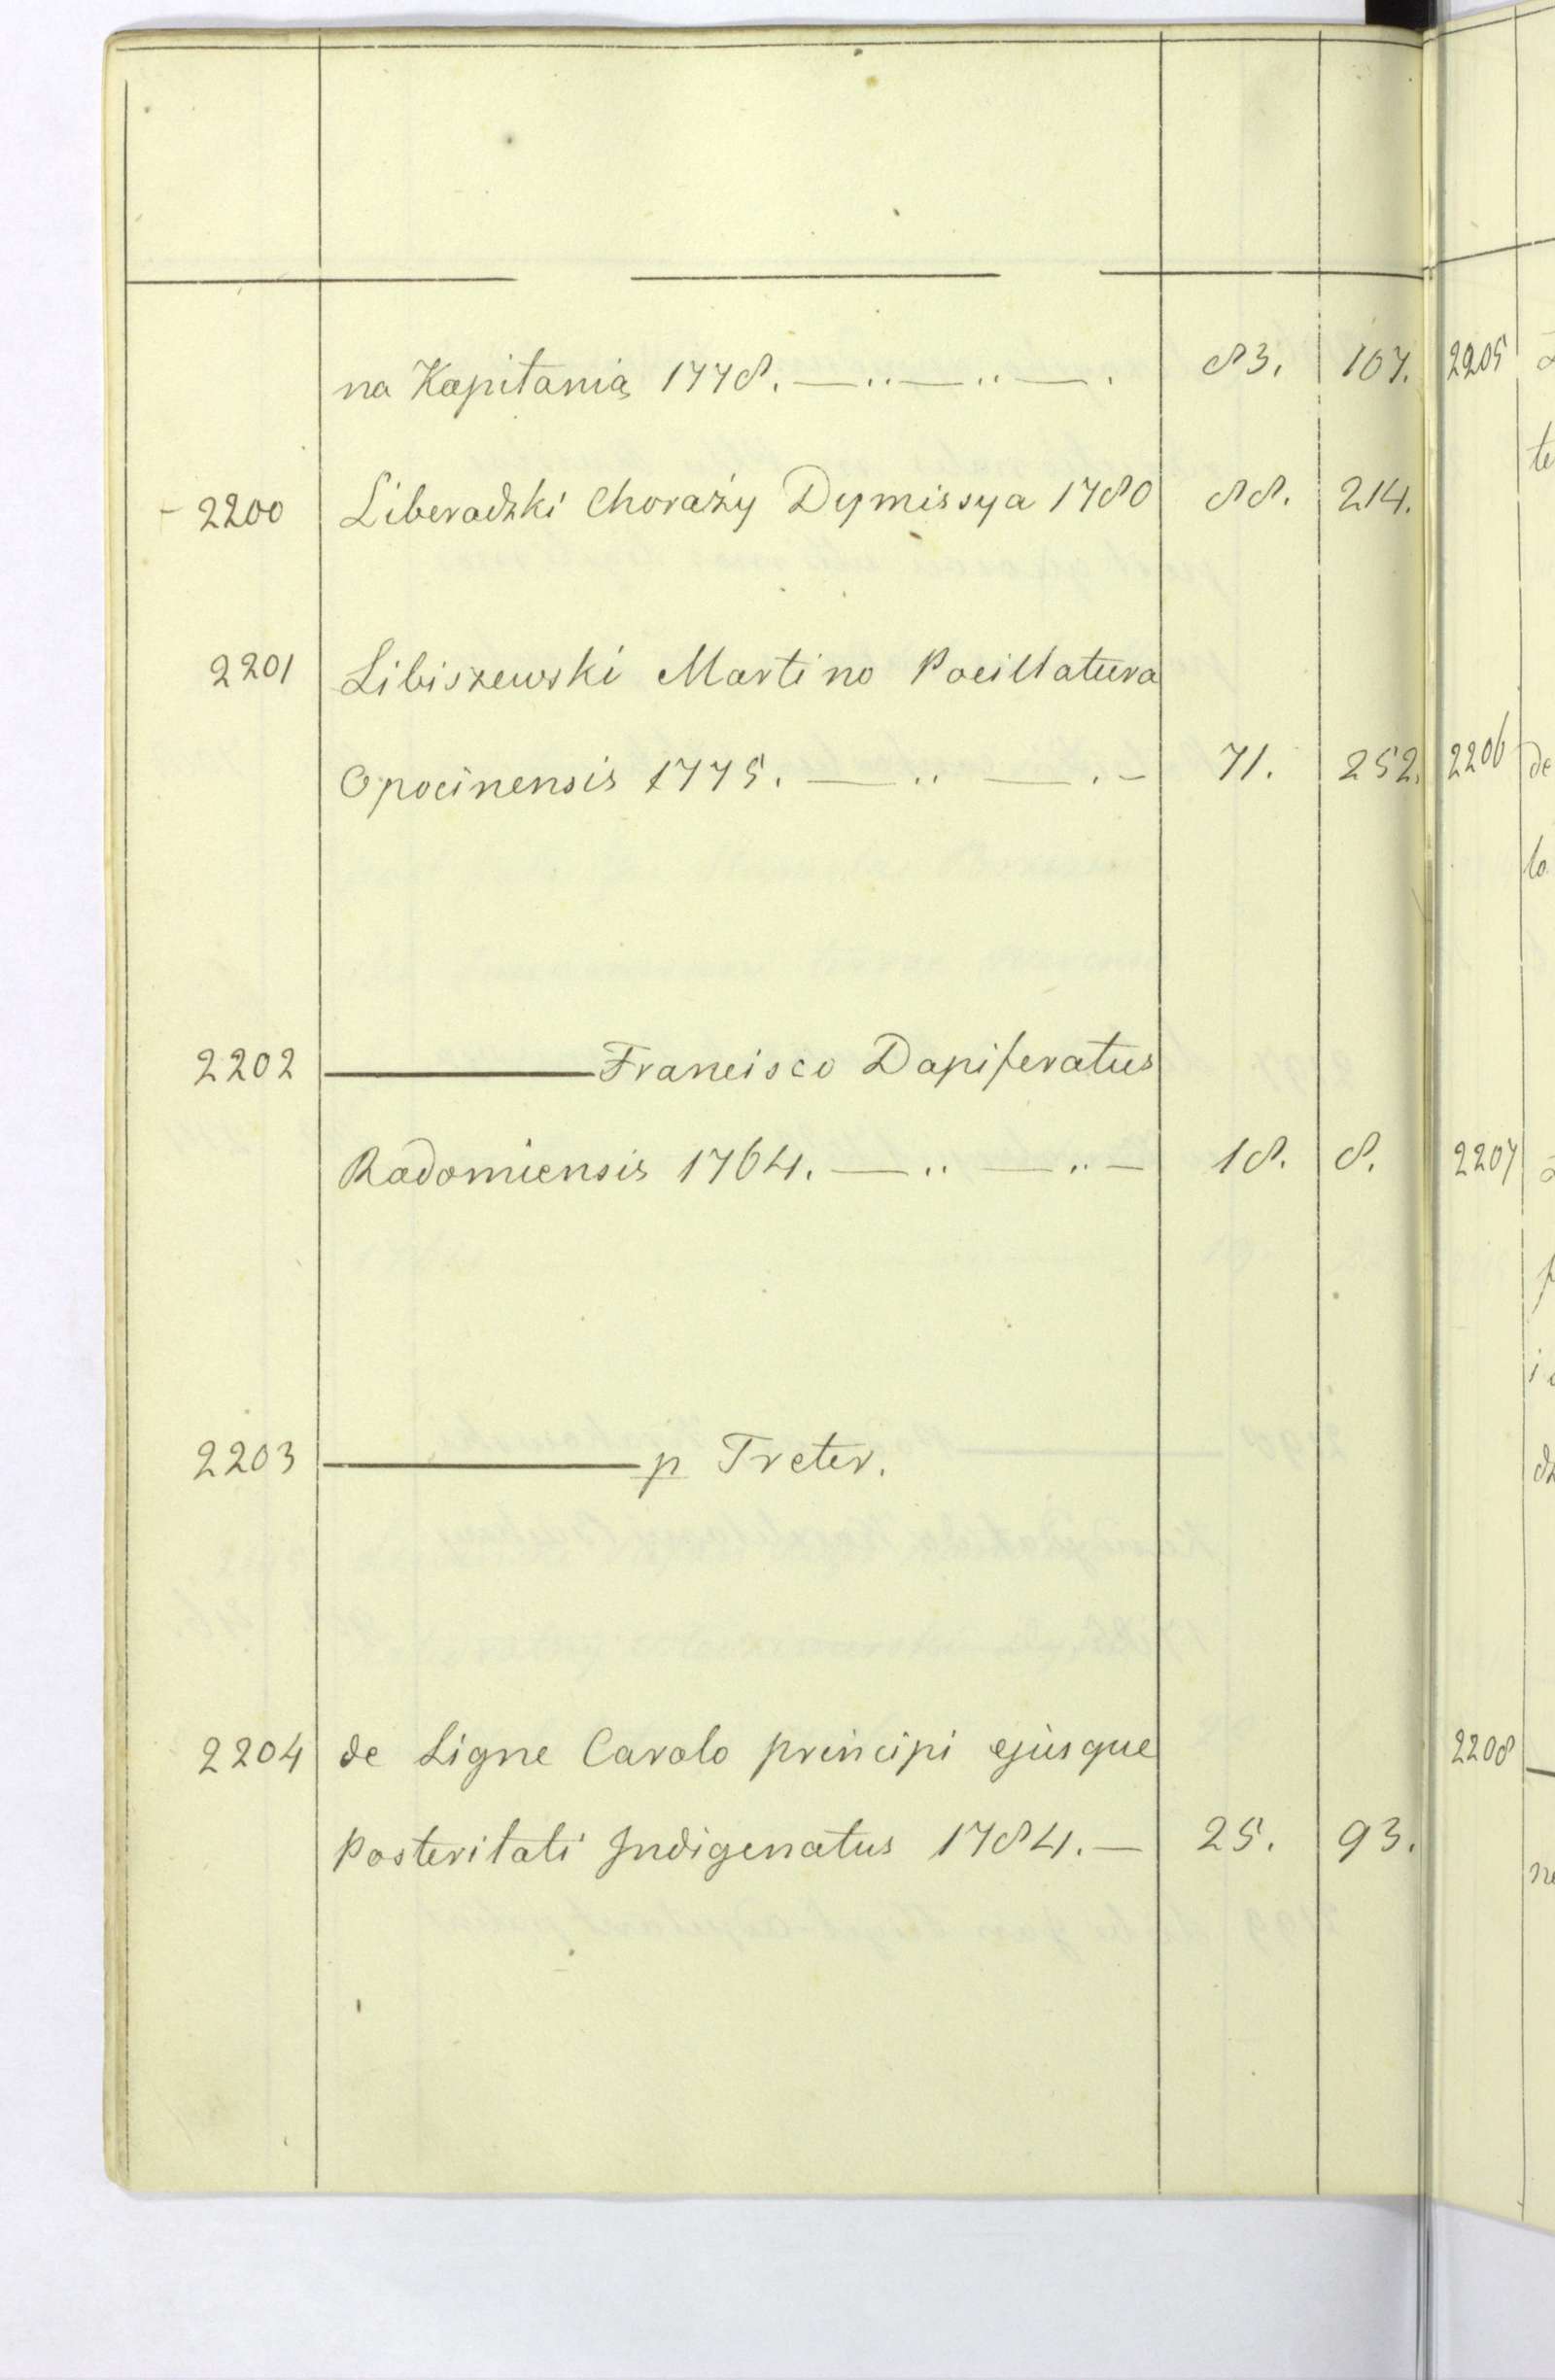 na Kapitanią 1778. — .. — .. — . 83. 107.
2200 Liberadzki Chorąży Dymissya 1780 88. 214.
2201 Libiszewski Martino Pocillatura
Opocinensis 1775. — .. — . - 71. 252.
2202 ——— Francisco Dapiferatus
Radomiensis 1764. — .. — .. — 18. 8.
2203 ——— p Treter.
2204 de Ligne Carolo principi ejusque
Posteritati Indigenatus 1784. — 25. 93.
2205
te
2206 de
lo
2207
2208